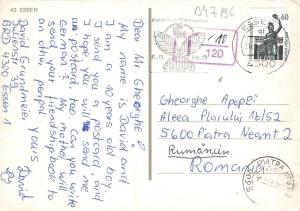 43 ESSEN
Dear Mr. Gheorghe!
My name is David and
I am a 10 years old boy.
I send you a postcard and
I hope you will send me
a postcard too. Can you write
German? My mother will
send your friendship book to
an other penpal.
Yours
David
David Grundmeier
BRD 4300 Essen 1
D47796
120
60
4300
Gheorghe
Aleea Plaiului 16/52
5600 Piatra Neamt 2
Rumänien
Romania
PIATRA